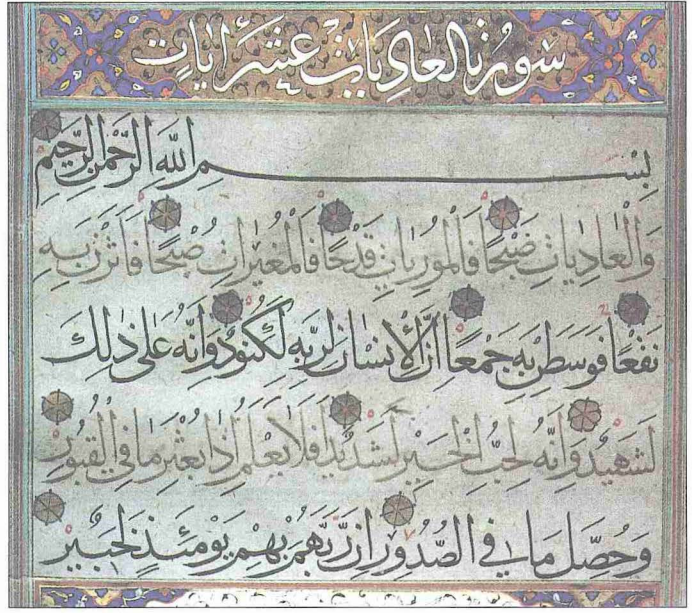 سورة العاديات عشر آيات
بسم الله الرحمن الرحيم
وَالْعَادِيَاتِ ضَبْحًا فَالْمُورِيَاتِ قَدْحًا فَالْمُغِيرَاتِ صُبْحًا فَأَثَرْنَ بِهِ
نَقْعًا فَوَسَطْنَ بِهِ جَمْعًا إِنَّ الْإِنْسَانَ لِرَبِّهِ لَكَنُودٌ وَإِنَّهُ عَلَى ذَلِكَ
لَشَهِيدٌ وَإِنَّهُ لِحُبِّ الْخَيْرِ لَشَدِيدٌ أَفَلَا يَعْلَمُ إِذَا بُعْثِرَ مَا فِي الْقُبُورِ
وَحُصِّلَ مَا فِي الصُّدُورِ إِنَّ رَبَّهُمْ بِهِمْ يَوْمَئِذٍ لَخَبِيرٌ